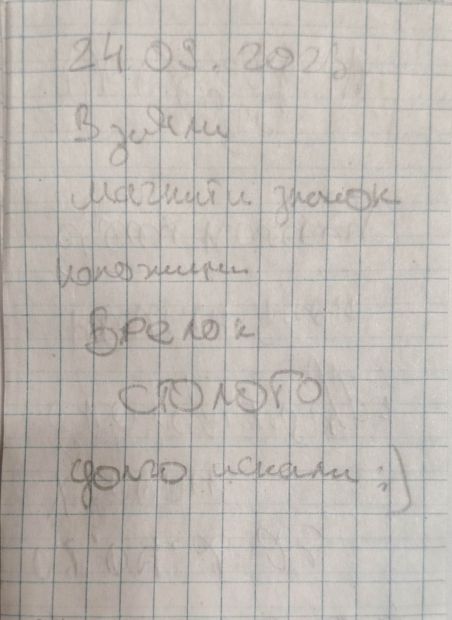 24.09.2023
Взяли
магнит и значок
положили
Брелок
СТОЛОТО
долго искали :)